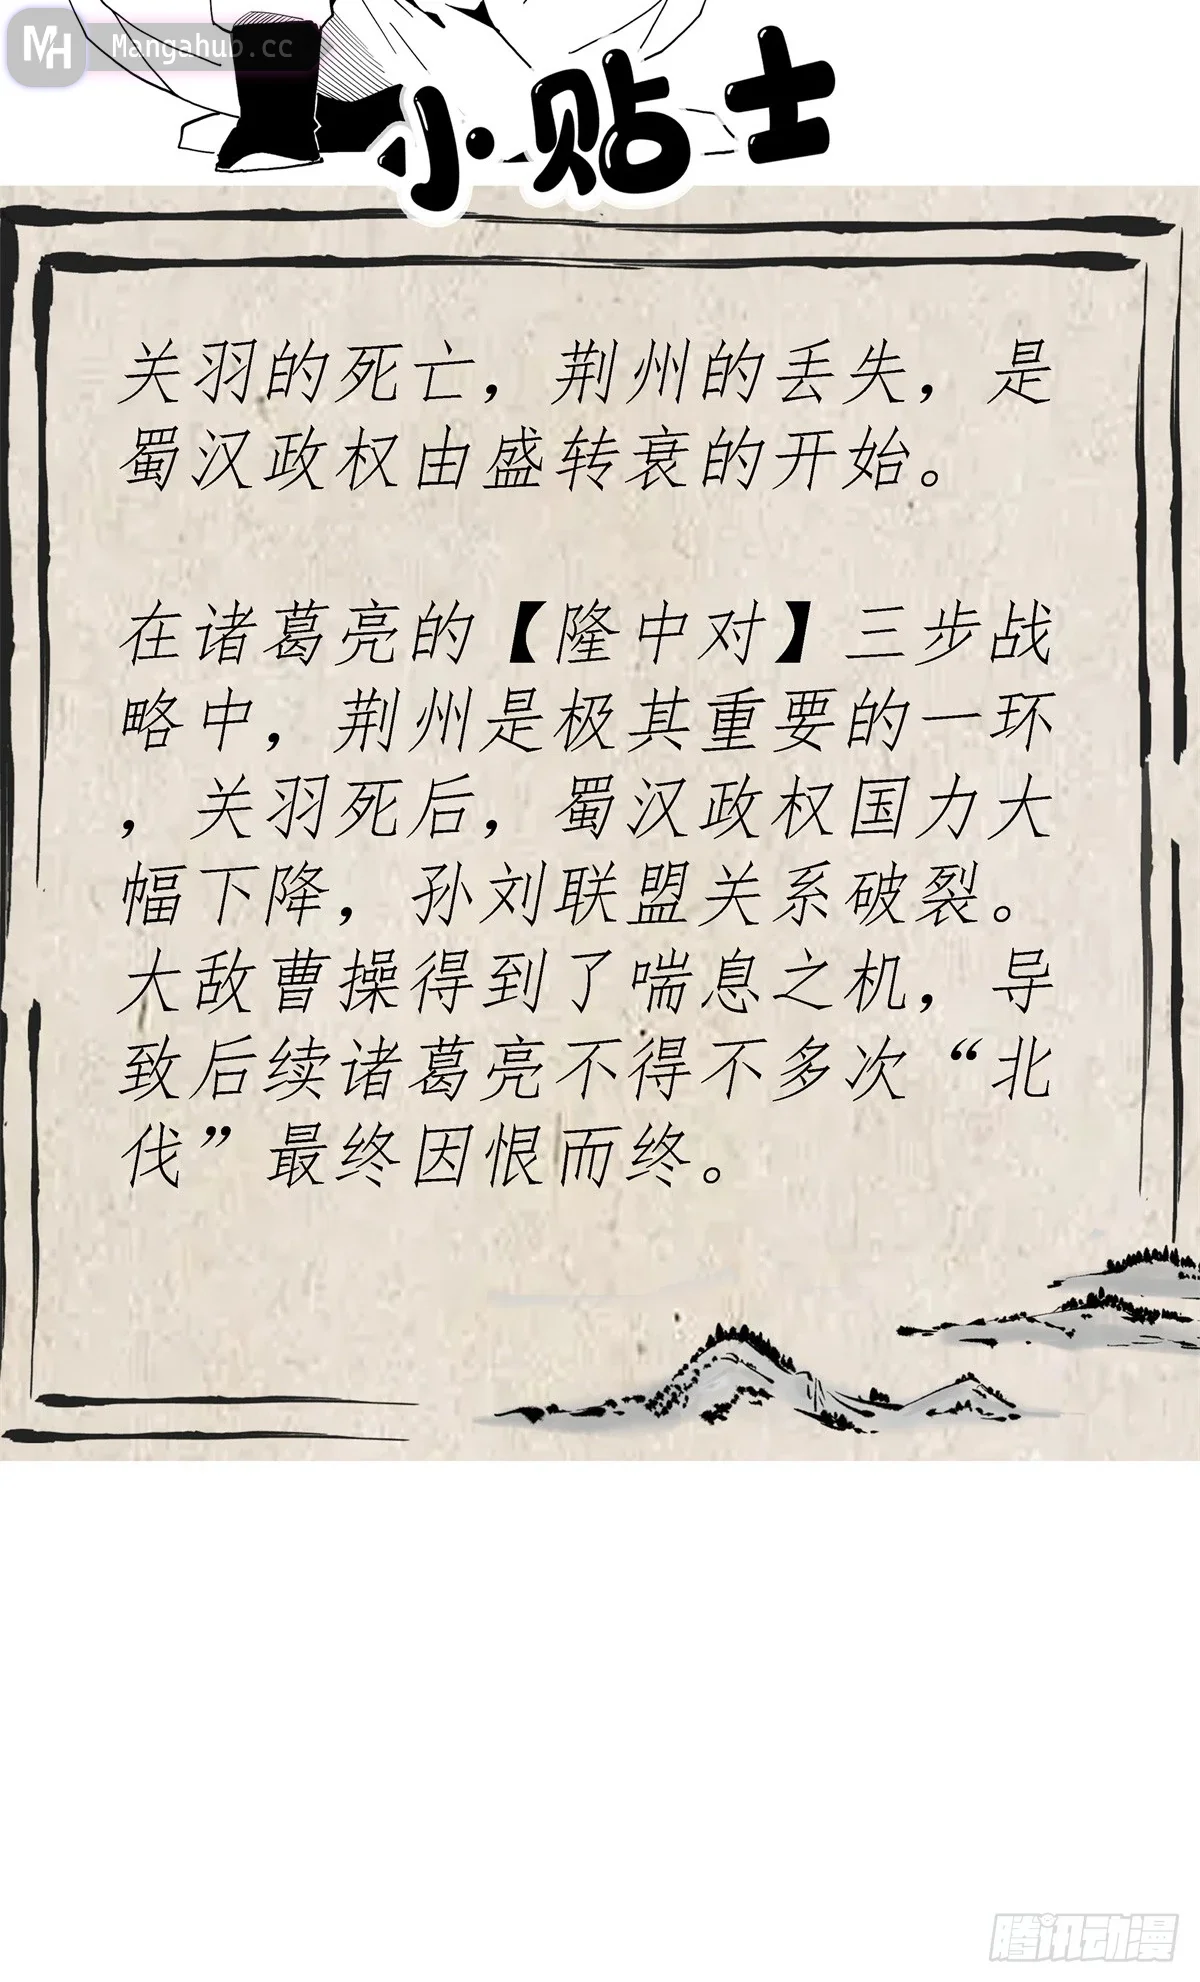 MH Mangahub.cc
小贴士
关羽的死亡，荆州的丢失，是
蜀汉政权由盛转衰的开始。
在诸葛亮的【隆中对】三步战
略中，荆州是极其重要的一环
，关羽死后，蜀汉政权国力大
幅下降，孙刘联盟关系破裂。
大敌曹操得到了喘息之机，导
致后续诸葛亮不得不多次“北
伐”最终因恨而终。
腾讯动漫